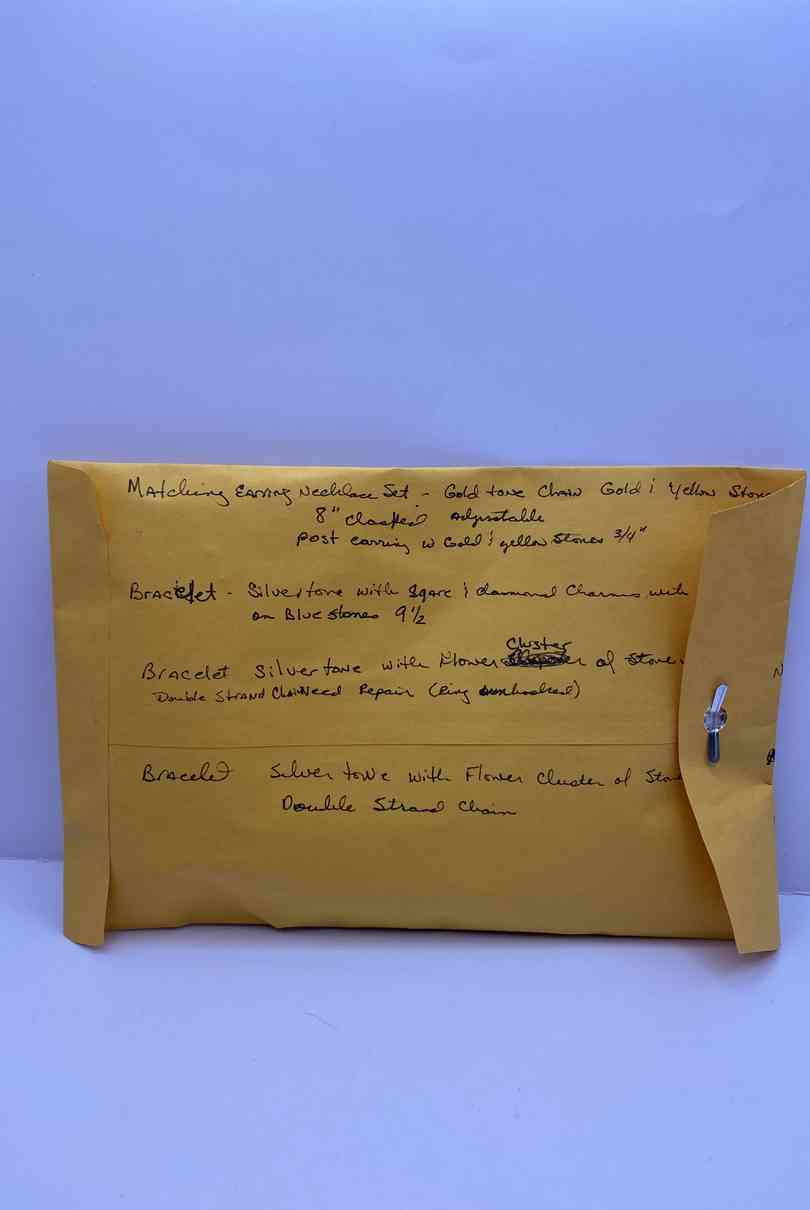 Matching Earring Necklace Set - Gold tone Chain Gold & Yellow Stone
8" Clasped Adjustable
Post earring w Gold & yellow Stones 3/4"
Bracelet - Silvertone with Sqare & diamond Charms with
on Blue stones 9 1/2
Cluster
Bracelet Silvertone with Flower of Stones
Double Strand Chain Need Repair (Ring unhooked)
Bracelet Silver tone with Flower Cluster of Ston
Double Strand Chain
N